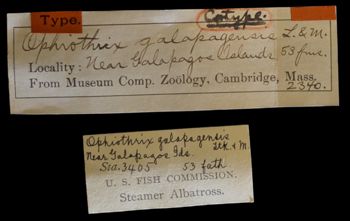 Type.
Cotype.
Ophiothrix galapagensis L. & M.
Locality: Near Galapagos Islands 53 fms.
From Museum Comp. Zoölogy, Cambridge, Mass.
2340.
Ophiothrix galapagensis
Ltk. & M.
Near Galapagos Ids.
Sta. 3405 53 fath
U. S. FISH COMMISSION.
Steamer Albatross.